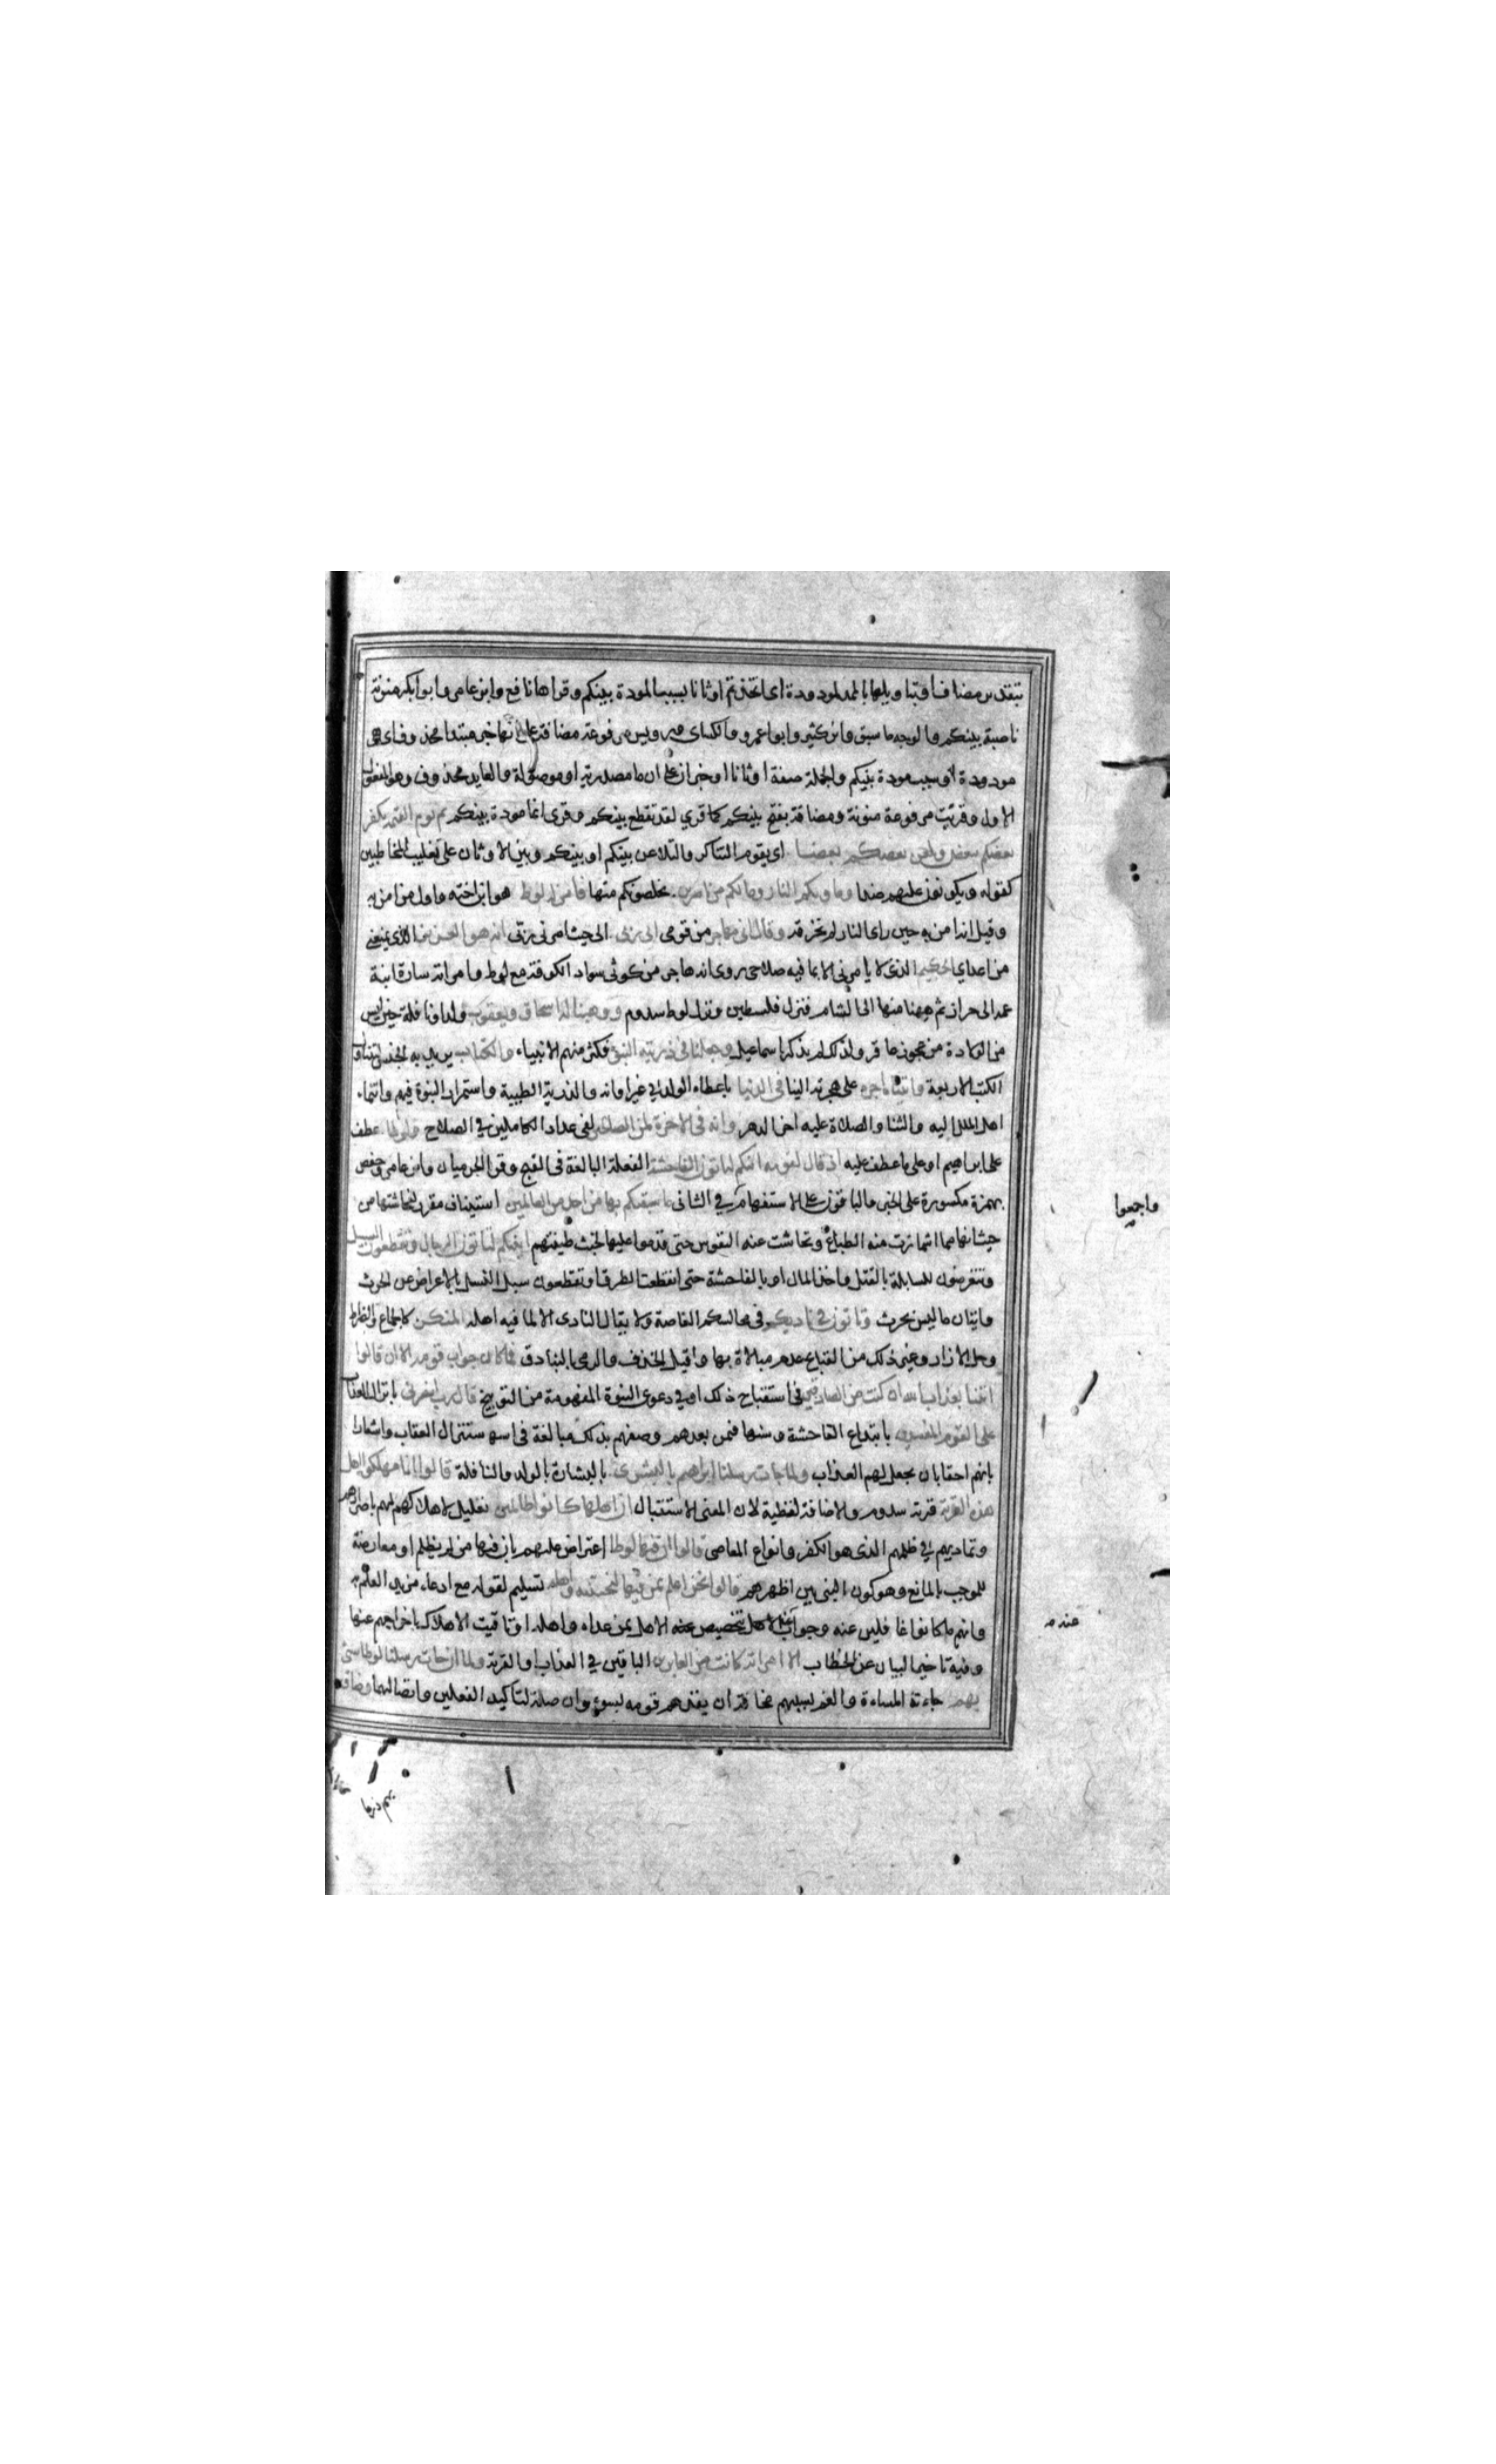 بتقدير مضاف او بتاويلها بالمودودة اى اتخذتم اوثانا بسبب المودة بينكم وقراها نافع وابن عامر وابو بكر منونة
ناصبة بينكم والوجه ما سبق وابن كثير وابو عمرو والكساى ورويس مرفوعة مضافة على انها خبر مبتدا محذوف اى هى
مودودة او سبب مودة بينكم والجملة صفة اوثانا او خبر ان على ان ما مصدرية او موصولة والعايد محذوف وهو المفعول
الاول وقرئت مرفوعة منونة ومضافة بفتح بينكم كما قري لقد تقطع بينكم وقرى انما مودة بينكم ثم يوم القيمة يكفر
بعضكم ببعض ويلعن بعضكم بعضا اى يقوم التناكر والتلاعن بينكم او بينكم وبين الاوثان على تغليب المخاطبين
كقوله ويكونون عليهم ضدا وماويكم النار ومالكم من ناصرين يخلصونكم منها فامن له لوط هو ابن اخته واول من امن به
وقيل انه امن به حين راى النار لم تحرقه وقال انى مهاجر من قومى الى ربى الى حيث امرنى ربى انه هو العزيز الذى يمنعنى
من اعداي الحكيم الذى لا يامرنى الا بما فيه صلاحى روى انه هاجر من كوثى سواد الكوفة مع لوط وامراته سارة ابنة
عمه الى حران ثم منها الى الشام فنزل فلسطين ونزل لوط سدوم ووهبنا له اسحاق ويعقوب ولدا ونافلة حين ايس
من الولادة من عجوز عاقر ولذلك لم يذكر اسماعيل وجعلنا فى ذريته النبوة فكثر منهم الانبياء والكتاب يريد به الجنس ليتناول
الكتب الاربعة واتيناه اجره على هجرته الينا فى الدنيا باعطاء الولد في غير اوانه والذرية الطيبة واستمرار النبوة فيهم وانتماء
اهل الملل اليه والثنا والصلاة عليه اخر الدهر وانه فى الاخرة لمن الصالحين لفى عداد الكاملين في الصلاح ولوطا عطف
على ابراهيم او على ما عطف عليه اذ قال لقومه ائنكم لتاتون الفاحشة الفعلة البالغة فى القبح وقرا الحرميان وابن عامر وحفص
بهمزة مكسورة على الخبر والباقون على الاستفهام في الثانى ما سبقكم بها من احد من العالمين استيناف مقرر لفاحشتها من
حيث انها مما اشمازت منه الطباع وتحاشت عنه النفوس حتى قدموا عليها لخبث طينتهم ائنكم لتاتون الرجال وتقطعون السبيل
وتتعرضون للسابلة بالقتل واخذ المال او بالفاحشة حتى انقطعت الطرق او تقطعون سبيل النسل بالاعراض عن الحرث
واتيان ما ليس بحرث وتاتون في ناديكم فى مجالسكم الغاصة ولا يقال النادى الا لما فيه اهله المنكر كالجماع والضراط
وحل الازار وغير ذلك من القبايح عدم مبالاة بها وقيل الخذف والرمى بالبنادق فما كان جواب قومه الا ان قالوا
ائتنا بعذاب الله ان كنت من الصادقين فى استقباح ذلك او في دعوى النبوة المفهومة من التوبيخ قال رب انصرنى بانزال العذاب
على القوم المفسدين بابتداع الفاحشة وسنها فمن بعدهم وصفهم بذلك مبالغة فى استنزال العقاب واشعارا
بانهم احقا بان يعجل لهم العذاب ولما جات رسلنا ابراهيم بالبشرى بالبشارة بالولد والنافلة قالوا انا مهلكوا اهل
هذه القرية قرية سدوم والاضافة لفظية لان المعنى الاستقبال ان اهلها كانوا ظالمين تعليل لاهلاكهم لهم باصرارهم
وتماديهم في ظلمهم الذى هو الكفر وانواع المعاصى قالوا ان فيها لوطا اعتراض عليهم بان فيها من لم يظلم او معارضة
للموجب بالمانع وهو كون النبى بين اظهرهم قالوا نحن اعلم بمن فيها لننجينه واهله تسليم لقوله مع ادعاء مزيد العلم به
وانهم ما كانوا غافلين عنه وجواب عنه بتخصيص الاهل بمن عداه واهله او تاقيت الاهلاك باخراجهم عنها
وفيه تاخير البيان عن الخطاب الا امراته كانت من الغابرين الباقين في العذاب او القرية ولما ان جات رسلنا لوطا سئ
بهم جاءته المساءة والغم بسببهم مخافة ان يقصدهم قومه بسوء وان صلة لتاكيد الفعلين واتصالهما وضاق
واجمعوا
عنه
بهم ذرعا